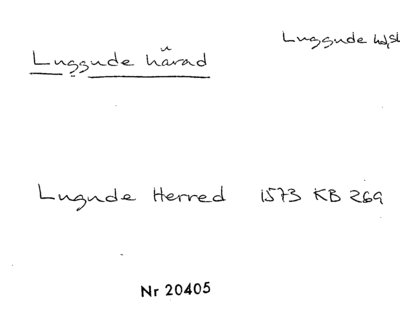 Luggude härad
Luggude hd, Sk
Lugude Herred 1573 KB 269
Nr 20405